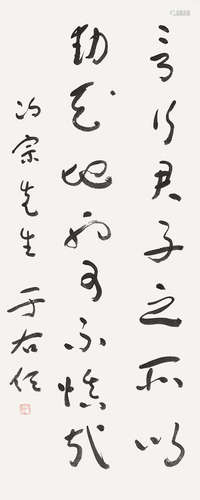 言行君子之所以
動天地可不慎哉
冶宗先生 于右任